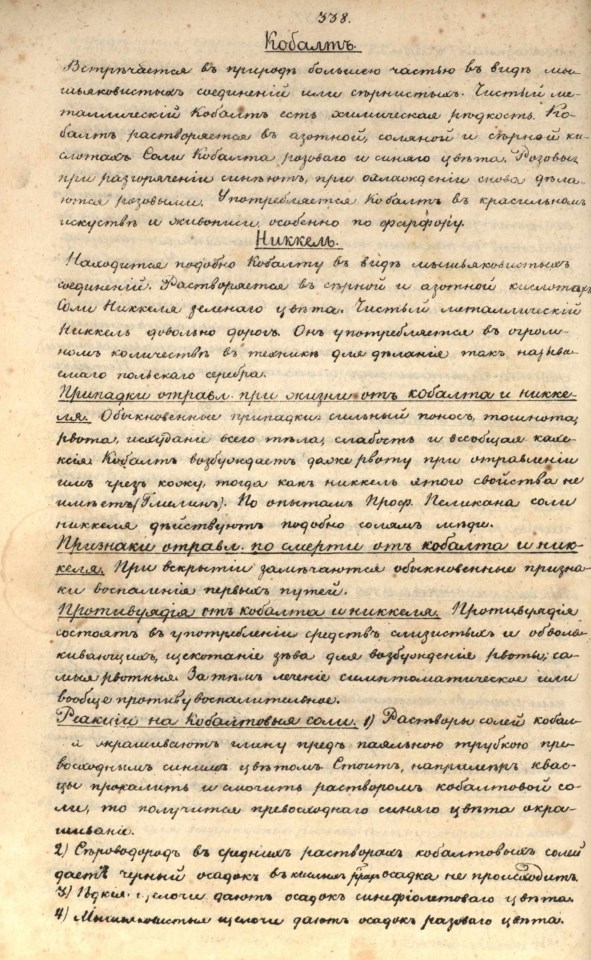 338.
Кобалтъ.
Встрѣчается въ природѣ большею частью въ видѣ мы-
шьяковистыхъ соединеній или сѣрнистыхъ. Чистый ме-
таллическій Кобалтъ есть химическая рѣдкость. Ко-
балтъ растворяется въ азотной, соляной и сѣрной ки-
слотахъ Соли Кобалта розоваго и синяго цвѣта. Розовыя
при разгоряченіи синѣютъ, при охлажденіи снова дѣла-
ются розовыми. Употребляется Кобалтъ въ красильномъ
искуствѣ и живописи, особенно по фарфору.
Никкель.
Находится подобно Кобалту въ видѣ мышьяковистыхъ
соединеній. Растворяется въ сѣрной и азотной кислотахъ
Соли Никкеля зеленаго цвѣта. Чистый металлическій
Никкель довольно дорогъ. Онъ употребляется въ огром-
номъ количествѣ въ техникѣ для дѣланія такъ называ-
емаго польскаго серебра.
Припадки отравл. при жизни отъ кобалта и никке-
ля. Обыкновенные припадки: сильный поносъ, тошнота,
рвота, исхуданіе всего тѣла, слабость и всеобщая кахе-
ксія. Кобалтъ возбуждаетъ даже рвоту при отравленіи
имъ чрезъ кожу, тогда какъ никкель этого свойства не
имѣетъ (Гмелинъ). По опытамъ Проф. Пеликана соли
никкеля дѣйствуютъ подобно солямъ мѣди.
Признаки отравл. по смерти отъ кобалта и ник-
келя. При вскрытіи замѣчаются обыкновенные призна-
ки воспаленія первыхъ путей.
Противуядія отъ кобалта и никкеля. Противуядія
состоятъ въ употребленіи средствъ слизистыхъ и обвола-
кивающихъ, щекотаніе зѣва для возбужденія рвоты, са-
мыя рвотныя. За тѣмъ леченіе симптоматическое или
вообще противувоспалительное.
Реакціи на Кобалтовыя соли. 1) Растворы солей кобал-
я окрашиваютъ глину предъ паяльною трубкою пре-
восходнымъ синимъ цвѣтомъ Стоитъ, напримѣръ квас-
цы прокалить и смочить растворомъ кобалтовой со-
ли, то получится превосходнаго синяго цвѣта окра-
шиваніе.
2) Сѣроводородъ въ среднихъ растворахъ кобалтовыхъ солей
даетъ черный осадокъ въ кислыхъ осадка не происходитъ.
3) Ѣдкія щелочи даютъ осадокъ синефіолетоваго цвѣта.
4) Мышьяковистыя щелочи даютъ осадокъ розоваго цвѣта.